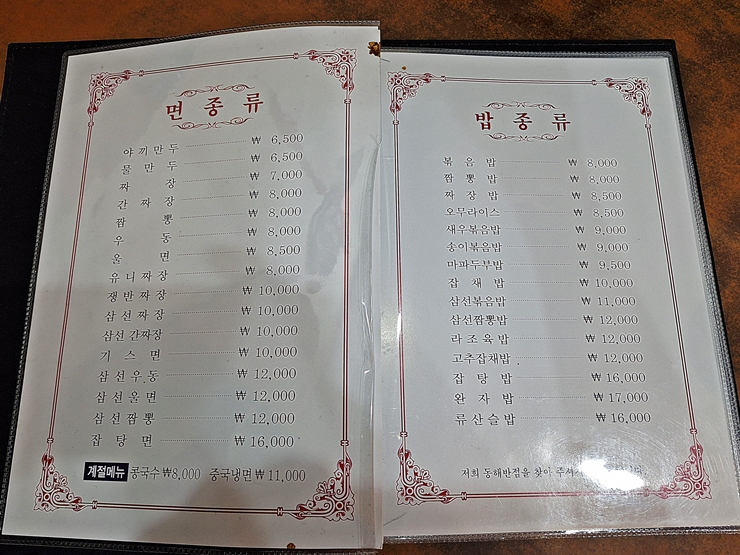 면 종 류
야끼만두 ₩ 6,500
물 만 두 ₩ 6,500
짜 장 ₩ 7,000
간 짜 장 ₩ 8,000
짬 뽕 ₩ 8,000
우 동 ₩ 8,000
울 면 ₩ 8,500
유 니 짜 장 ₩ 8,000
쟁 반 짜 장 ₩ 10,000
삼 선 짜 장 ₩ 10,000
삼선 간짜장 ₩ 10,000
기 스 면 ₩ 10,000
삼 선 우 동 ₩ 12,000
삼 선 울 면 ₩ 12,000
삼 선 짬 뽕 ₩ 12,000
잡 탕 면 ₩ 16,000
계절메뉴 콩국수 ₩8,000 중국냉면 ₩ 11,000
밥 종 류
볶 음 밥 ₩ 8,000
짬 뽕 밥 ₩ 8,000
짜 장 밥 ₩ 8,500
오무라이스 ₩ 8,500
새우볶음밥 ₩ 9,000
송이볶음밥 ₩ 9,000
마파두부밥 ₩ 9,500
잡 채 밥 ₩ 10,000
삼선볶음밥 ₩ 11,000
삼선짬뽕밥 ₩ 12,000
라 조 육 밥 ₩ 12,000
고추잡채밥 ₩ 12,000
잡 탕 밥 ₩ 16,000
완 자 밥 ₩ 17,000
류 산 슬 밥 ₩ 16,000
저희 동해반점을 찾아